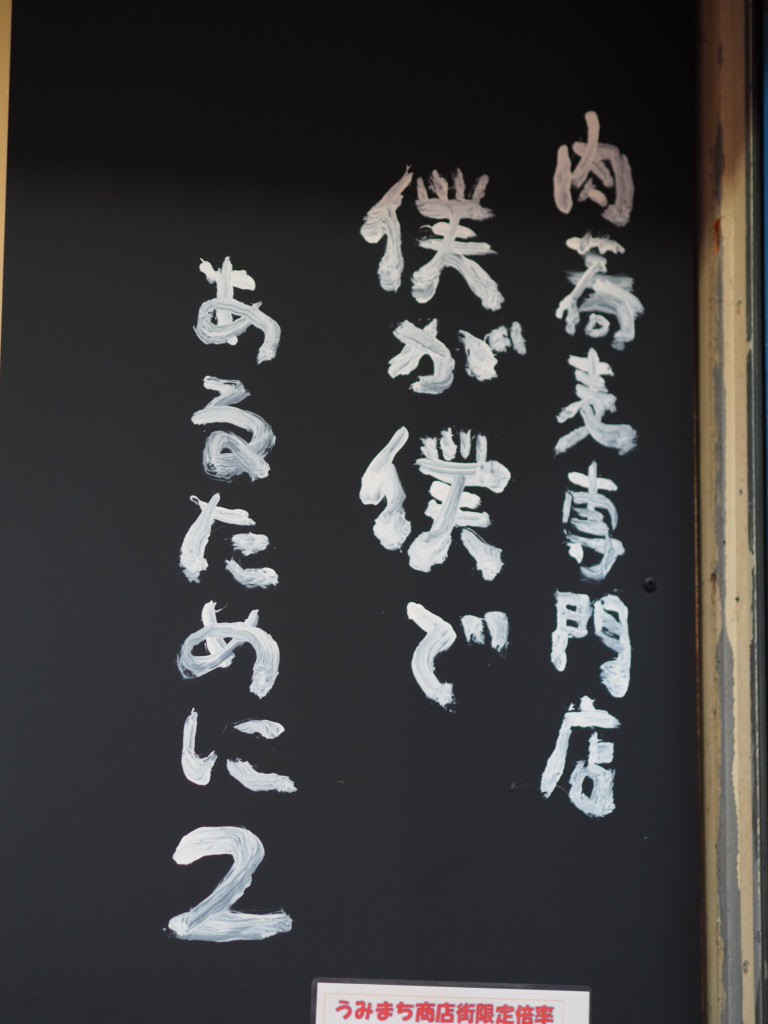 肉蕎麦専門店
僕が僕で
あるために2
うみまち商店街限定倍率